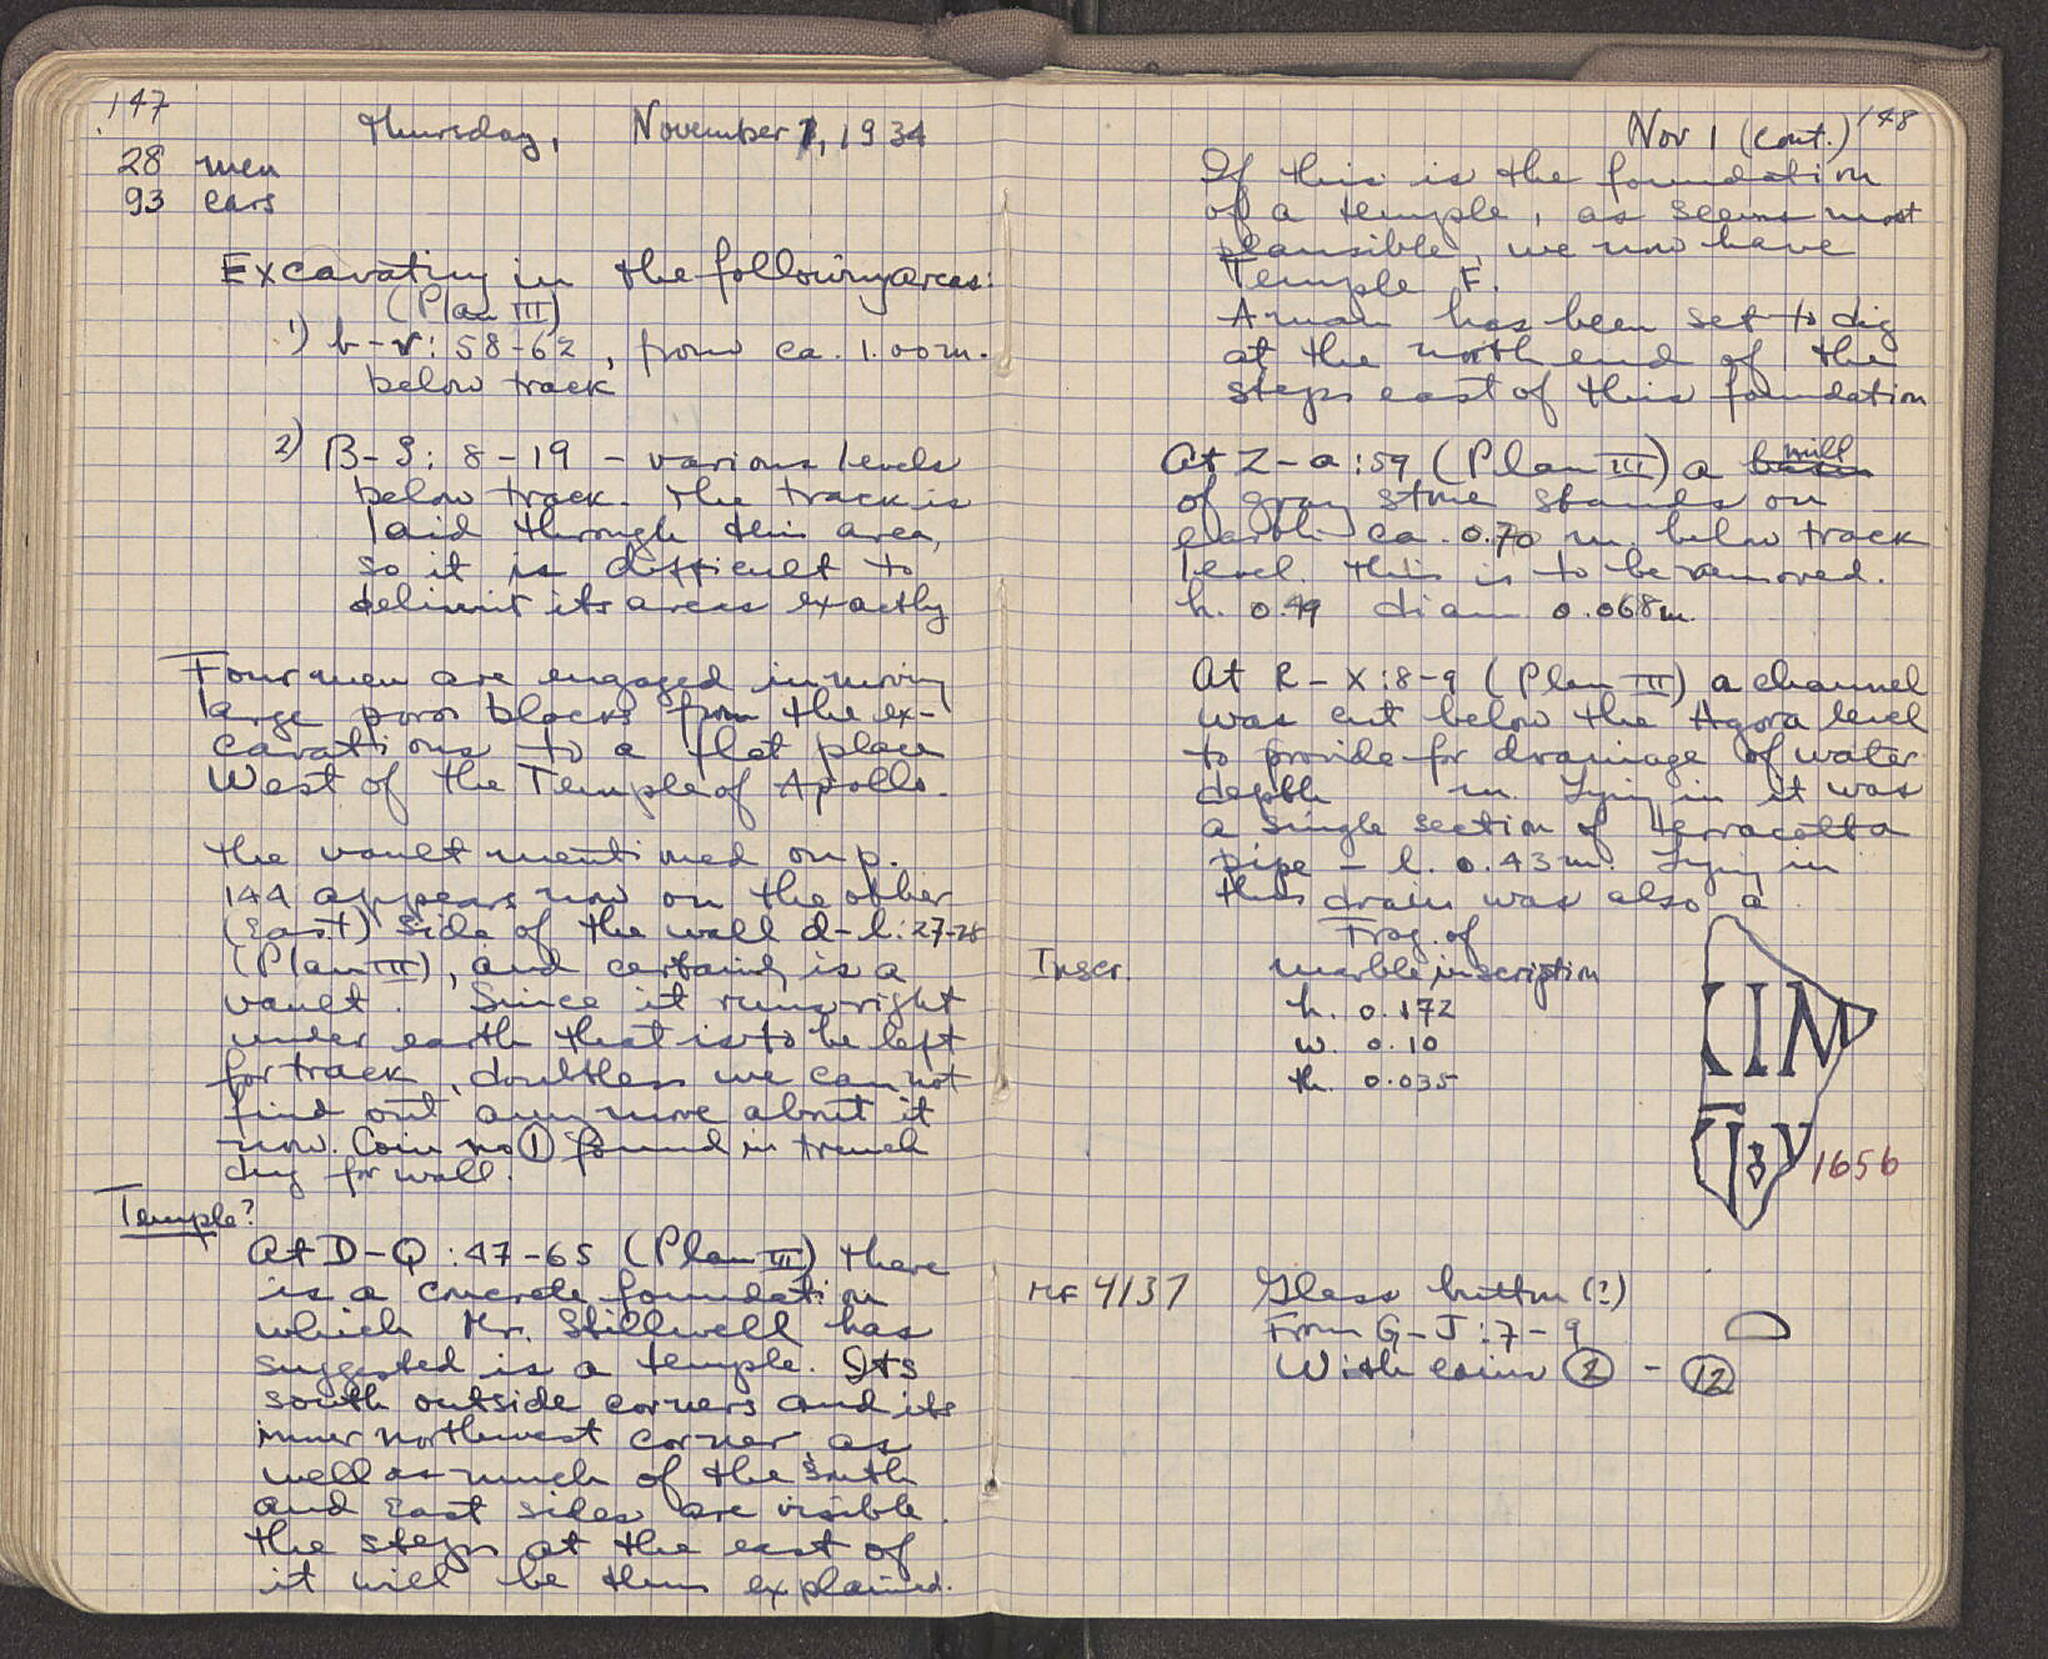 147
Thursday, November 1, 1934
28 men
93 cars
Excavating in the following areas:
(Plan III)
1) b-v: 58-62, from ca. 1.00m.
below track
2) B-S: 8-19 - various levels
below track. The track is
laid through this area,
so it is difficult to
delimit its areas exactly
Four men are engaged in moving
large poros blocks from the ex-
cavations to a flat place
West of the Temple of Apollo.
The vault mentioned on p.
144 appears now on the other
(East) side of the wall d-l: 27-28
(Plan III), and certainly is a
vault. Since it runs right
under earth that is to be left
for track, doubtless we cannot
find out any more about it
now. Coin no 1 found in trench
dug for wall.
Temple?
At D-Q: 47-65 (Plan III) there
is a concrete foundation
which Mr. Stillwell has
suggested is a temple. Its
south outside corners and its
inner northwest corner, as
well as much of the south
and East sides are visible.
The steps at the east of
it will be thus explained.
Nov 1 (cont.) 148
If this is the foundation
of a temple, as seems most
plausible, we now have
Temple F.
A man has been set to dig
at the north end of the
steps east of this foundation
At Z-a: 59 (Plan III) a basin mill
of gray stone stands on
earth ca. 0.70 m. below track
level. This is to be removed.
h. 0.49 diam 0.068m.
At R-X: 8-9 (Plan III) a channel
was cut below the Agora level
to provide for drainage of water
depth m. Lying in it was
a single section of terracotta
pipe - l. 0.43m. Lying in
this drain was also a
Frag. of
Inscr. marble inscription
h. 0.172
w. 0.10
th. 0.035
IIM
1656
MF 4137 Glass button (?)
From G-J: 7-9
With coins 2 - 12